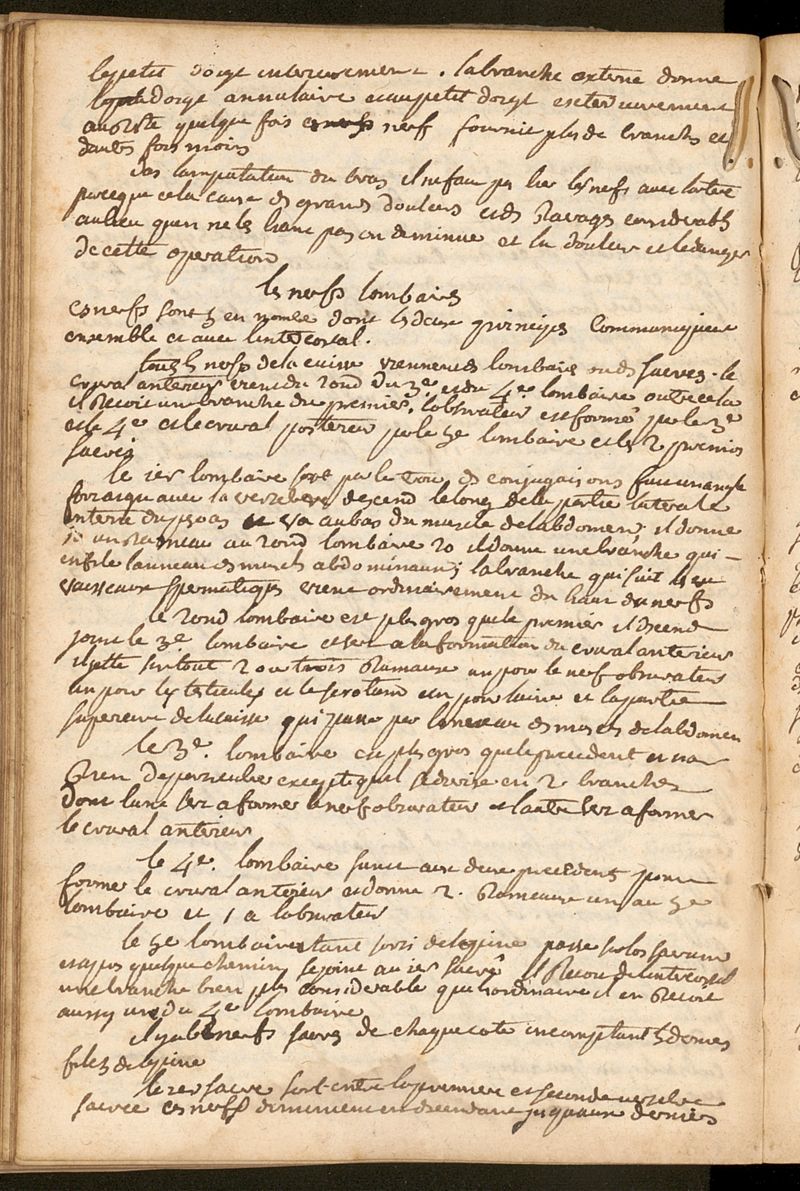 le petit doigt interieurement. la branche externe donne
doigt annulaire et au petit doigt exterieurement
au reste quelque fois nerf fournit plus de branches et
dautres fois moins
dans lamputation du bras il ne faut pas lier les nerfs avec lartere
parceque cela cause des grands douleurs et des ravages considerables
au lieu quen ne les liant pas on deminue et la douleur et le danger
de cette operation
les nerfs lombaires
ces nerfs sont 5 en nombre dont les deux principes communiquent
ensemble et avec lintercostal.
tous les nerfs de la cuisse viennent des lombaires ou des sacrés. le
crural anterieur vient du 2ond du 3e et du 4e lombaire outre cela
il recoit une branche du premier. lobturateur est formé par le 3e
et le 4e et le crural posterieur par le 5e lombaire et les 2 premiers
sacrés
le 1er lombaire sort par le trou des conjugaisons fait un angle
fort aigu avec la vertebre descend le long de la partie laterale
interne du psoas et va au bas du muscle de labdomen; il donne
1o un rameau au 2ond lombaire 2o il donne une branche qui
enfile lanneau des muscles abdominaux; la branche qui suit les
vaisseaux spermatiques vient ordinairement du haut du nerf
le 2ond lombaire est plus gros que le premier il descend
joint le 3e lombaire et sert a la formation du crural anterieur
il jette surtout 2 ou trois rameaux un pour le nerf obturateur
un pour les testicules et le scrotum et un pour laine et la partie
superieure de la cuisse qui passe par lanneau des muscles de labdomen
le 3e. lombaire est plus gros que le precedent et na
rien de particulier excepté quil se divise en 2 branches
dont lune sert a former le nerf obturateur et lautre sert a former
le crural anterieur
le 4e. lombaire sunit aux deux precedents pour
former le crural anterieur et donne 2. rameaux un au 5e
lombaire et 1 a lobturateur
le 5e lombaire etant sorti de lepine passe sur los sacrum
et apres quelque chemin se joint au 1er sacré il recoit de lintercostal
une branche bien plus considerable qua lordinaire il en recoit
aussy une du 4e lombaire
il y a 6 nerfs sacrés de chaque coté en comptant les derniers
filets de lepine
le 1er sacré sort entre la premiere et seconde vertebre
sacrée ces nerfs diminuent en descendant jusquaux derniers